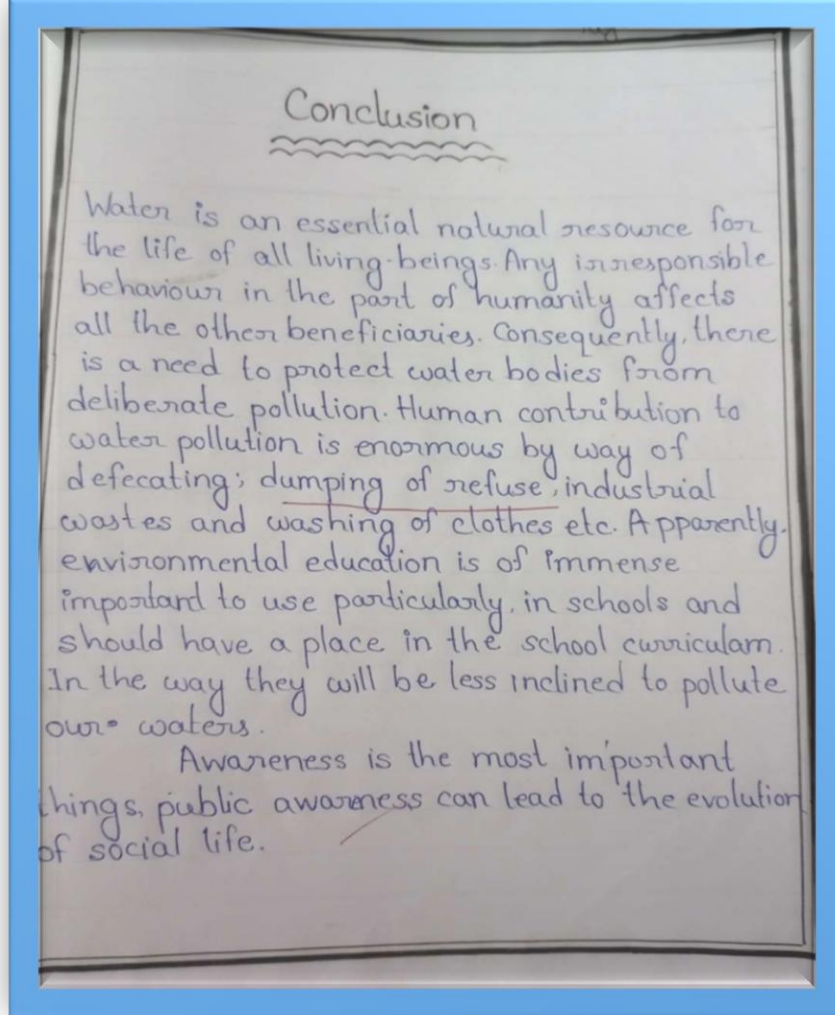 Conclusion
Water is an essential natural resource for
the life of all living-beings. Any irresponsible
behaviour in the part of humanity affects
all the other beneficiaries. Consequently, there
is a need to protect water bodies from
deliberate pollution. Human contribution to
water pollution is enormous by way of
defecating; dumping of refuse, industrial
wastes and washing of clothes etc. Apparently.
environmental education is of immense
important to use particularly. in schools and
should have a place in the school curriculam.
In the way they will be less inclined to pollute
our waters.
Awareness is the most important
things. public awarness can lead to the evolution
of social life.